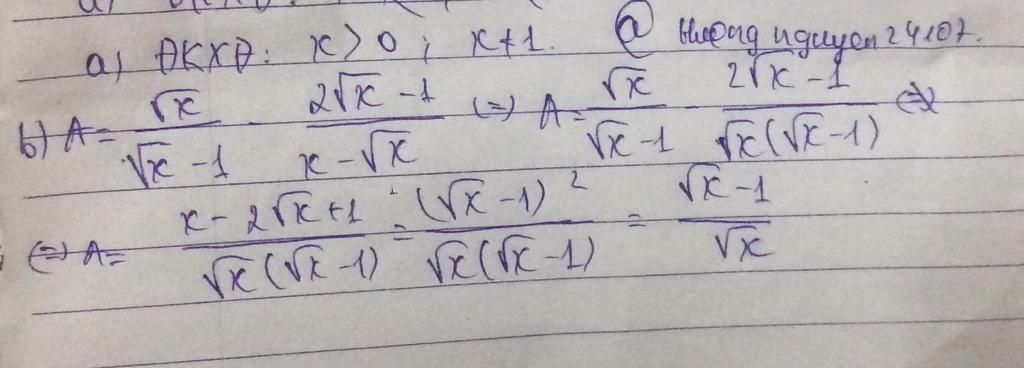 a) ĐKXĐ: x > 0 ; x ≠ 1. @ Hương nguyen 24107.
b) A = √x/(√x - 1) - (2√x - 1)/(x - √x) (=) A = √x/(√x - 1) - (2√x - 1)/(√x(√x - 1)) (=)
(=) A = (x - 2√x + 1)/(√x(√x - 1)) = (√x - 1)²/(√x(√x - 1)) = (√x - 1)/√x